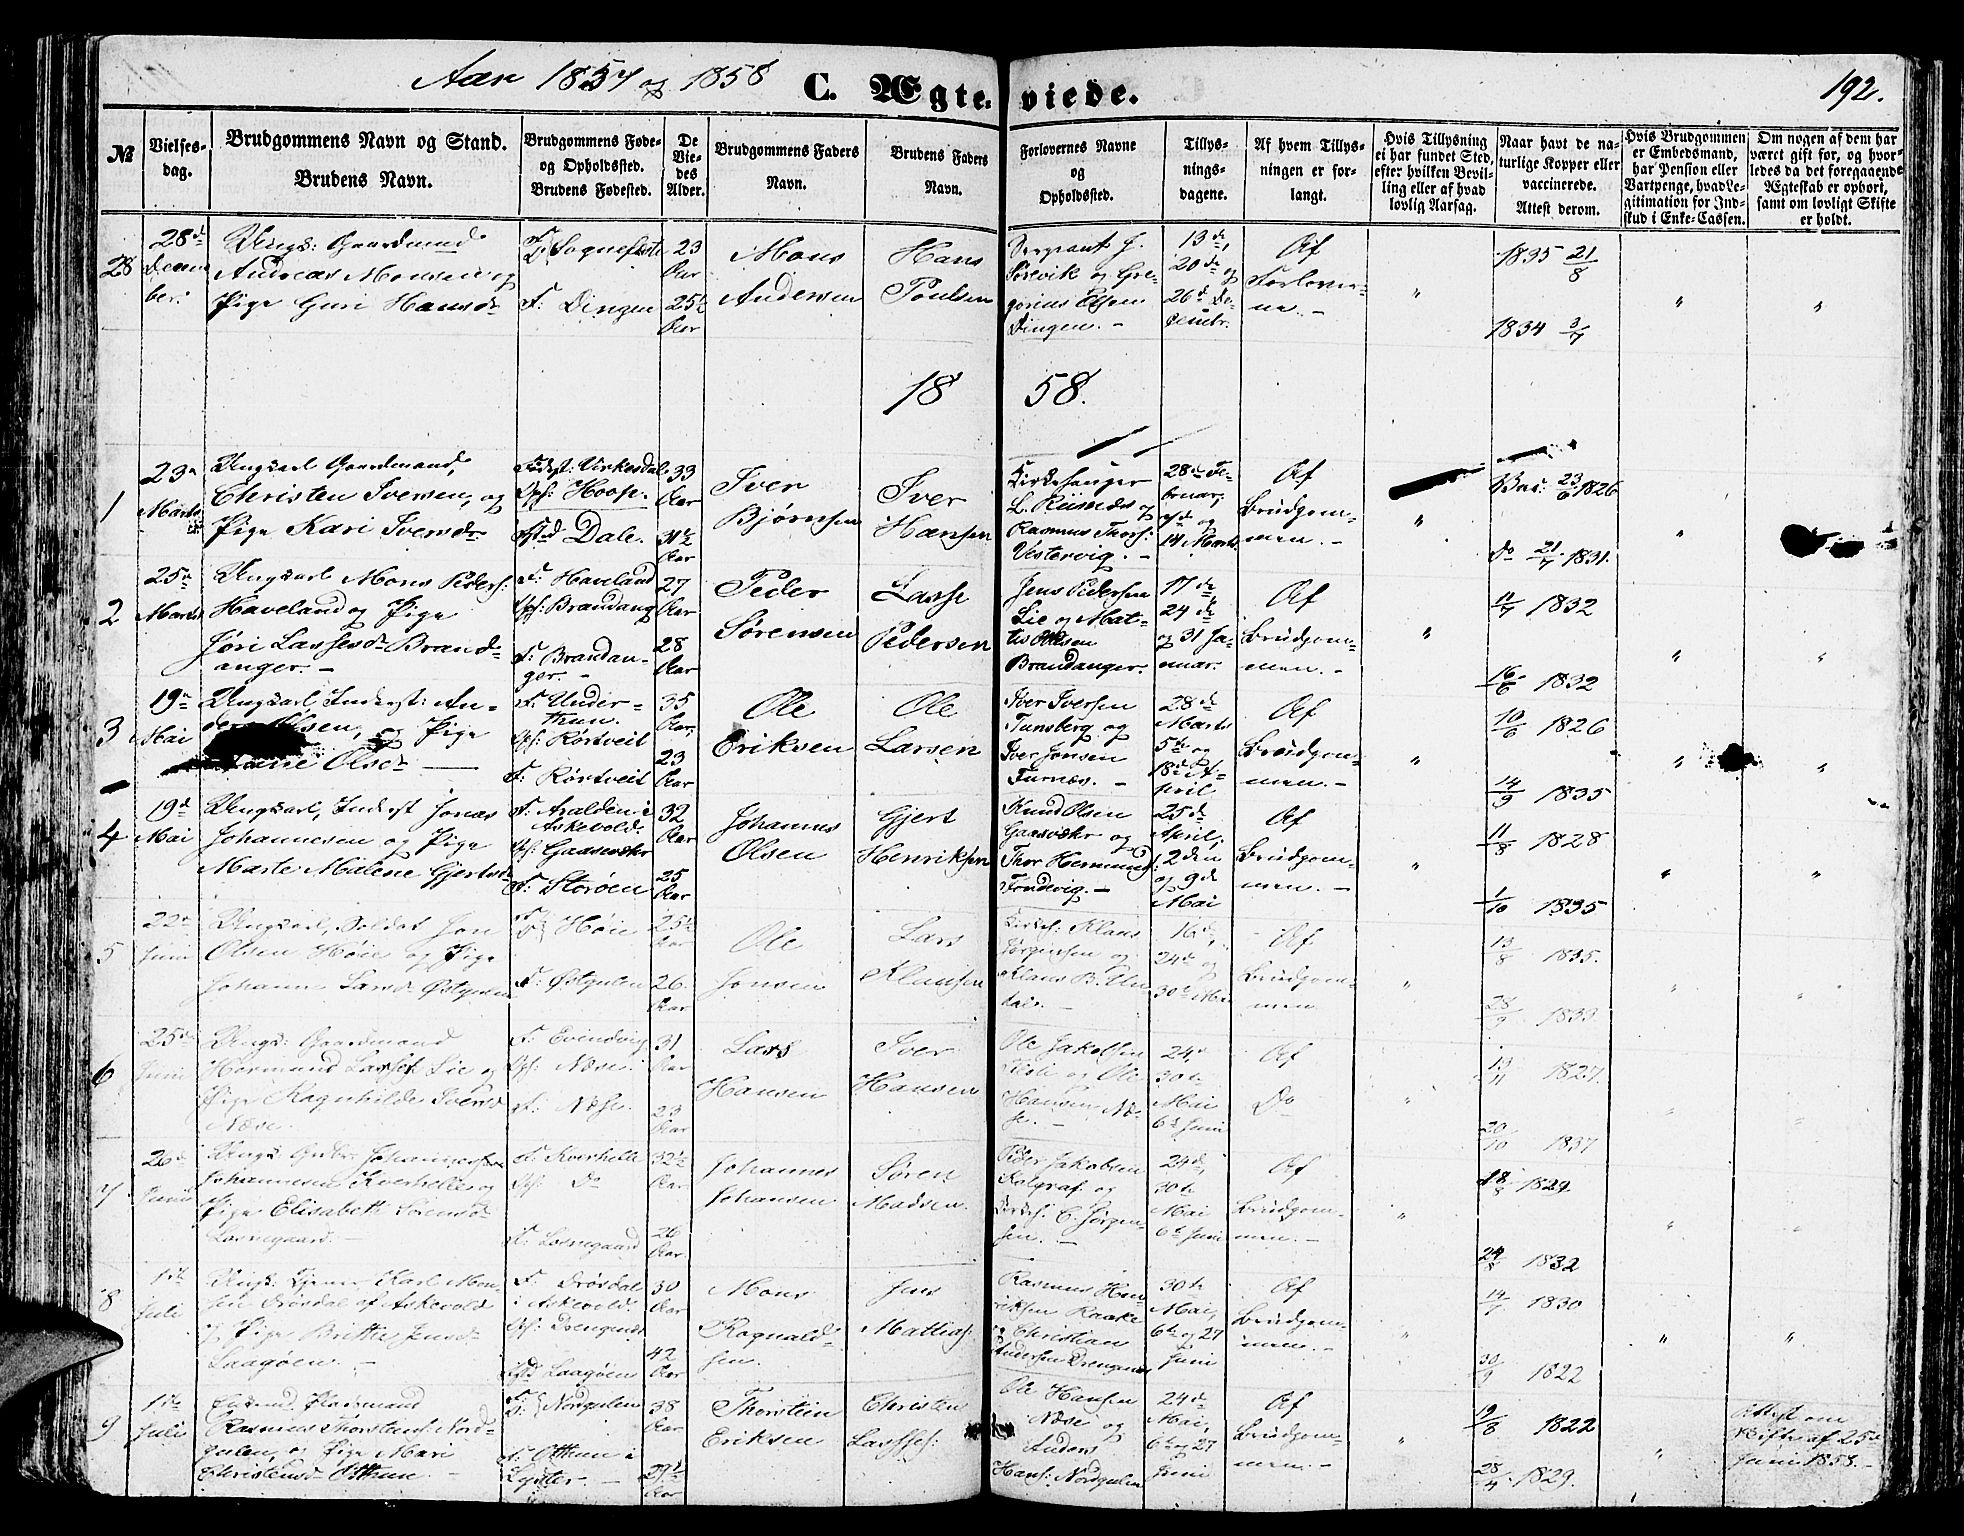 Aar 1857 og 1858
C. Ægteviede.
192.
№
Vielsesdag.
Brudgommens Navn og Stand.
Brudens Navn.
Brudgommens Føde-
og Opholdssted.
Brudens Fødested.
De
Vie-
des
Alder.
Brudgommens Faders
Navn.
Brudens Faders
Navn.
Forlovernes Navne
og
Opholdssted.
Tillys-
nings-
dagene.
Af hvem Tillys-
ningen er for-
langt.
Hvis Tillysning
ei har fundet Sted,
efter hvilken Bevil-
ling eller af hvad
lovlig Aarsag.
Naar havt de na-
turlige Kopper eller
vaccinerede.
Attest derom.
Hvis Brudgommen
er Embedsmand,
har Pension eller
Vartpenge, hvad Le-
gitimation for Ind-
skud i Enke-Cassen.
Om nogen af dem har
været gift før, og hvor-
ledes da det foregaaende
Ægteskab er ophørt,
samt om lovligt Skifte
er holdt.
28
28d
Decem
ber.
Ungk: Gaardmand
Andreas Monsen og
Pige Guri Hansdr
F. Dingen
23
Aar
25½
Aar
Mons
Andersen
Hans
Poulsen
Sergeant J.
Sørevik og Gre-
gorius Olsen
Dingen. -
13de,
20de og
26d De-
cembr.
Af
Forlover-
ne. -
"
1835 21/8
1834 3/7
"
"
1858.
1
23d
Marts
Ungkarl Gaardmand,
Christen Iversen, og
Pige Kari Iversdr
Fødest: Virkesdal
Oph: Hoop.
Fsted Dale.
33
Aar
31½
Aar
Iver
Bjørnsen
Iver
Hansen
Kirkesanger
L. Riisnes og
Rasmus Thors:
Vestervig. -
28de Fe-
bruar,
7de og
14 Marts.
Af
Brudgom-
men. -
"
Vac: 23/6 1826
Do 21/7 1831.
"
2
25d
Marts
Ungkarl Mons Peders:
Haveland og Pige
Jøri Lassesdr Brand-
anger. -
F. Haveland
Oph: Brandang
F. Brandan-
ger. -
27
Aar
28
Aar
Peder
Sørensen
Lasse
Pedersen
Jens Pedersen
Lie og Mat-
tis Olsen
Brandanger.
17de,
24de
og 31 Ja-
nuar.
Af
Brudgom-
men. -
"
11/7 1832
16/6 1832
"
"
3
19d
Mai
Ungkarl, Inderst: An-
ders Olsen, og Pige
Olsdr
F. Under-
thun.
Oph: Kørtveit
F. Kørtveit
35
Aar,
23
Aar
Ole
Eriksen
Ole
Larsen
Iver Iversen
Tunsberg og
Iver Jonsen
Furnæs. -
28de
Marts
5te og
18de A-
pril
Af
Brudgom-
men. -
"
10/6 1826
14/9 1835
"
"
4
19d
Mai
Ungkarl, Inderst Jonas
Johannesen og Pige
Marte Malene Gjertsdr
F. Aralden i
Askevold.
Oph: Gaasevær
F. Storøen
32
Aar
25
Aar
Johannes
Olsen
Gjert
Henriksen
Knud Olsen
Gaasvær og
Thor Hermunds:
Tondevig. -
25de
April,
2den
og 9de
Mai
Af
Brudgom-
men. -
"
11/8 1828
1/10 1835
"
"
5
22d
Juni
Ungkarl, Soldat Jon
Olsen Høie og Pige
Johanne Larsdr Østgulen
Høie
F. Østgulen
25½
Aar
26.
Aar
Ole
Jonsen
Lars
Klausen
Kirkes: Klaus
Jørgensen og
Klaus B. Un-
dal. -
16de,
24de og
30te Mai
Af
Brudgom-
men
"
13/8 1835.
28/9 1833
"
"
6
25d
Juni
Ungk: Gaardmand
Hermund Larsen Lie og
Pige Ragnhilde Iversdr
Næse.
F. Evendvig
Oph: Næse.
F. Næse.
31
Aar
23
Aar
Lars
Hansen
Iver
Hansen
Ole Jakobsen
og Ole
Hansen Næ-
se. -
24de
30te
Mai
6te Juni
Af
Do
"
13/11 1827.
20/10 1837
"
"
7
26d
Juni
Johannes
Johannesen Kverhelle og
Pige Elisabeth Sørensdr
Losnegaard. -
F. Kverhelle
Oph: Do
F. Losnegaard
32½
Aar
26
Aar
Johannes
Johansen
Søren
Madsen.
Peder Jakobsen
Kolgrof. og
Kirkes: C. Jørgen-
sen. -
24de,
30te
Mai
6te Juni
Af
Brudgom-
men. -
"
18/8 1829
24/8 1832
"
"
8
1ste
Juli
Ungk: Tjener Karl Mon-
sen Drøsdal af Askevold
og Pige Brithe Jensdr
Laagøen. -
F. Drøsdal
i Askevold.
Oph: Drengenæs
Fsted Laagøen
30
Aar
42
Aar
Mons
Ragnald-
sen.
Jens
Mattias:
Rasmus Hen-
riksen Raake
og Christian
Andersen Drengenæs
30te
Mai,
6te og 27
Juni
Af
Brudgom-
men. -
"
14/7 1830
30/9 1822
"
"
9
1ste
Juli
Enkem. Pladsmand
Rasmus Thorsteins: Nord-
gulen, og Pige Mari
Christensdr Otthun. -
Nordgulen
F. Otthun i
Lyster. -
38
Aar
29½
Aar
Thorstein
Eriksen
Christen
Lasses:
Ole Hansen
Næse og
Anders
Hans: Nordgulen
24de
Mai,
6te og 27
Juni
Af
Brudgom-
men. -
"
19/8 1822
28/4 1829.
"
Attest om
Skifte af 25de
Juni 1858. -